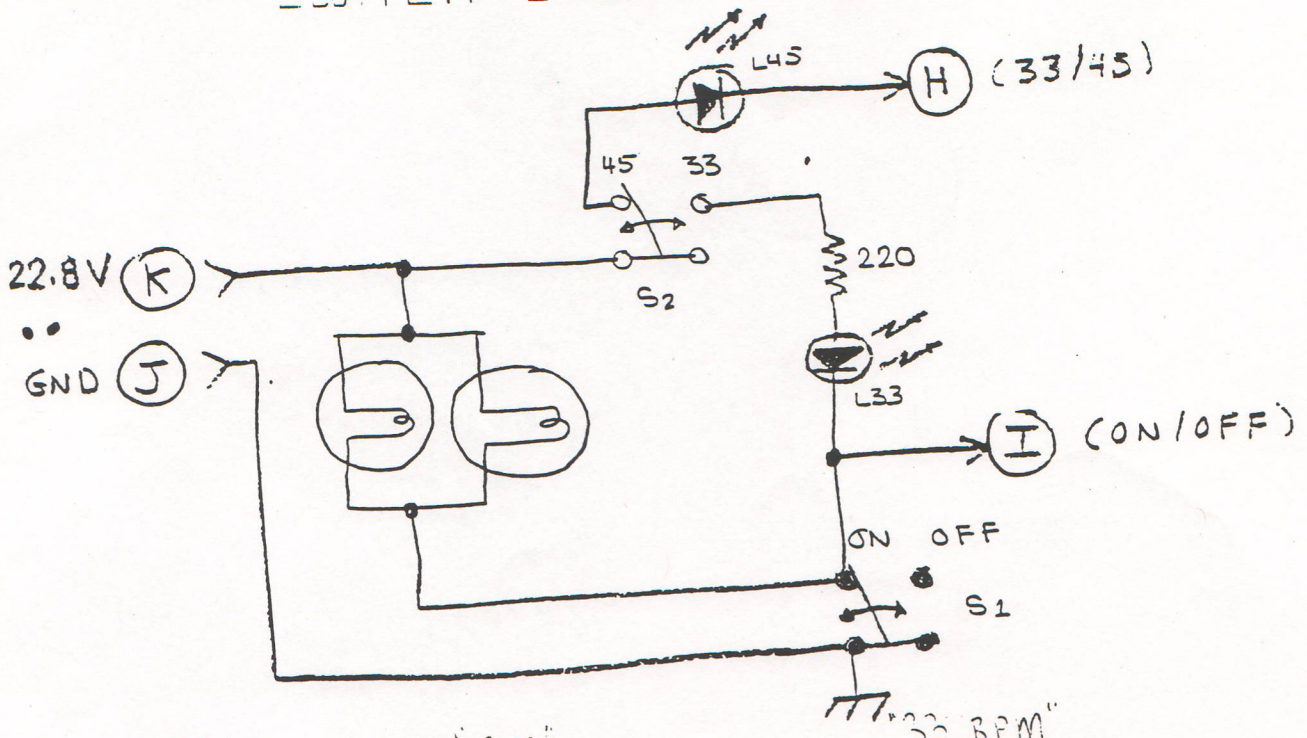 L45
H (33/45)
45 33
22.8V K
220
S2
GND J
L33
I (ON/OFF)
ON OFF
S1
"33 RPM"